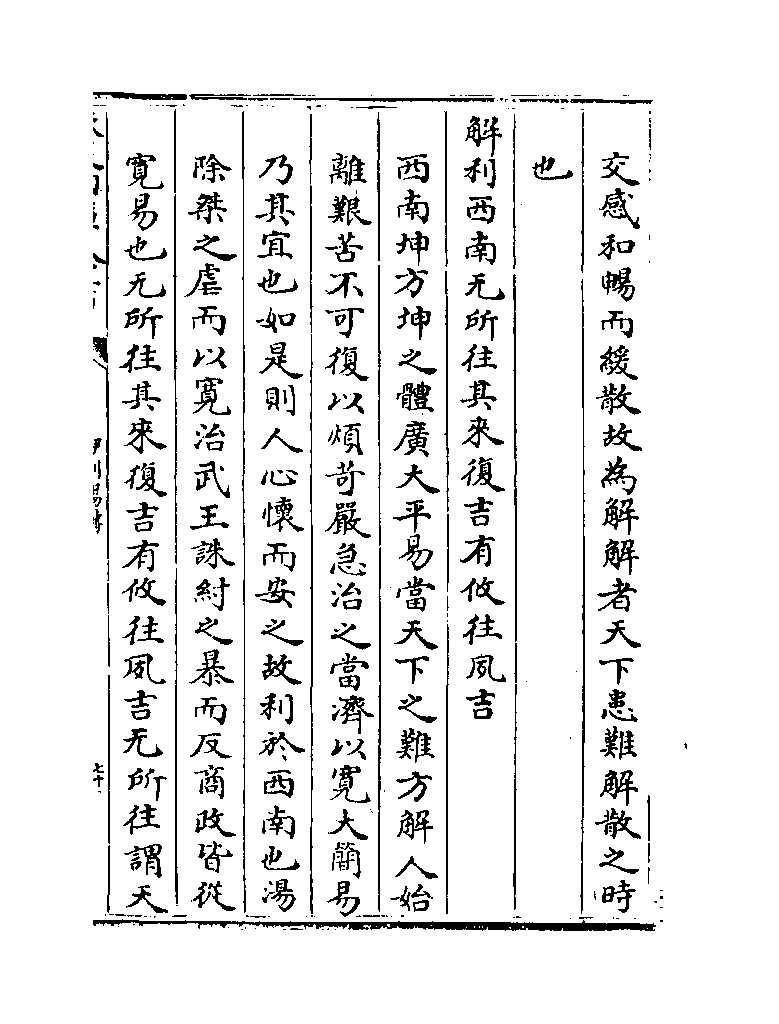 交感和暢而緩散故為解解者天下患難解散之時
也
解利西南无所往其來復吉有攸往夙吉
西南坤方坤之體廣大平易當天下之難方解人始
離艱苦不可復以煩苛嚴急治之當濟以寛大簡易
乃其宜也如是則人心懷而安之故利於西南也湯
除桀之虐而以寛治武王誅紂之暴而反商政皆從
寛易也无所往其來復吉有攸往夙吉无所往謂天
伊川易傳